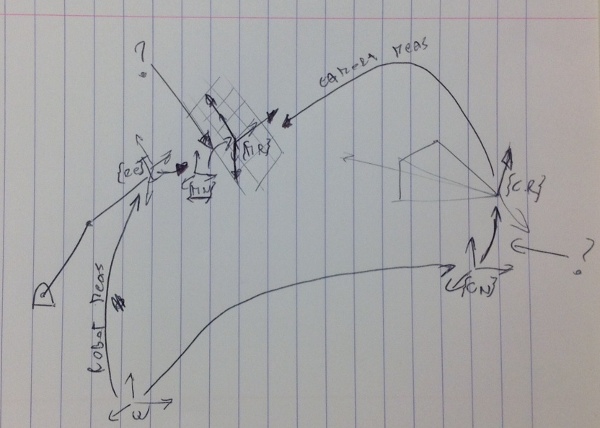 ?
camera meas
{EE}
{MR}
{MN}
{CR}
?
{CN}
Robot meas
W